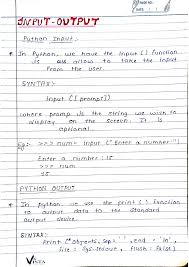 PAGE NO.:
DATE:
INPUT-OUTPUT
Python Input:
* In Python, we have the Input ( ) function
is allow to take the input
from the user.
SYNTAX:-
Input ( [prompt])
where prompt is the string we wish to
display on the screen. It is
optional.
Eg:- >>> num = Input ("Enter a number:")
Enter a number : 15
>>> num
15
PYTHON OUTPUT
* In python, we use the print ( ) function
to output data to the standard
output device
SYNTAX:
Print (*objects, sep=' ', end = '\n',
file = sys.stdout, flush = False)
VISTA